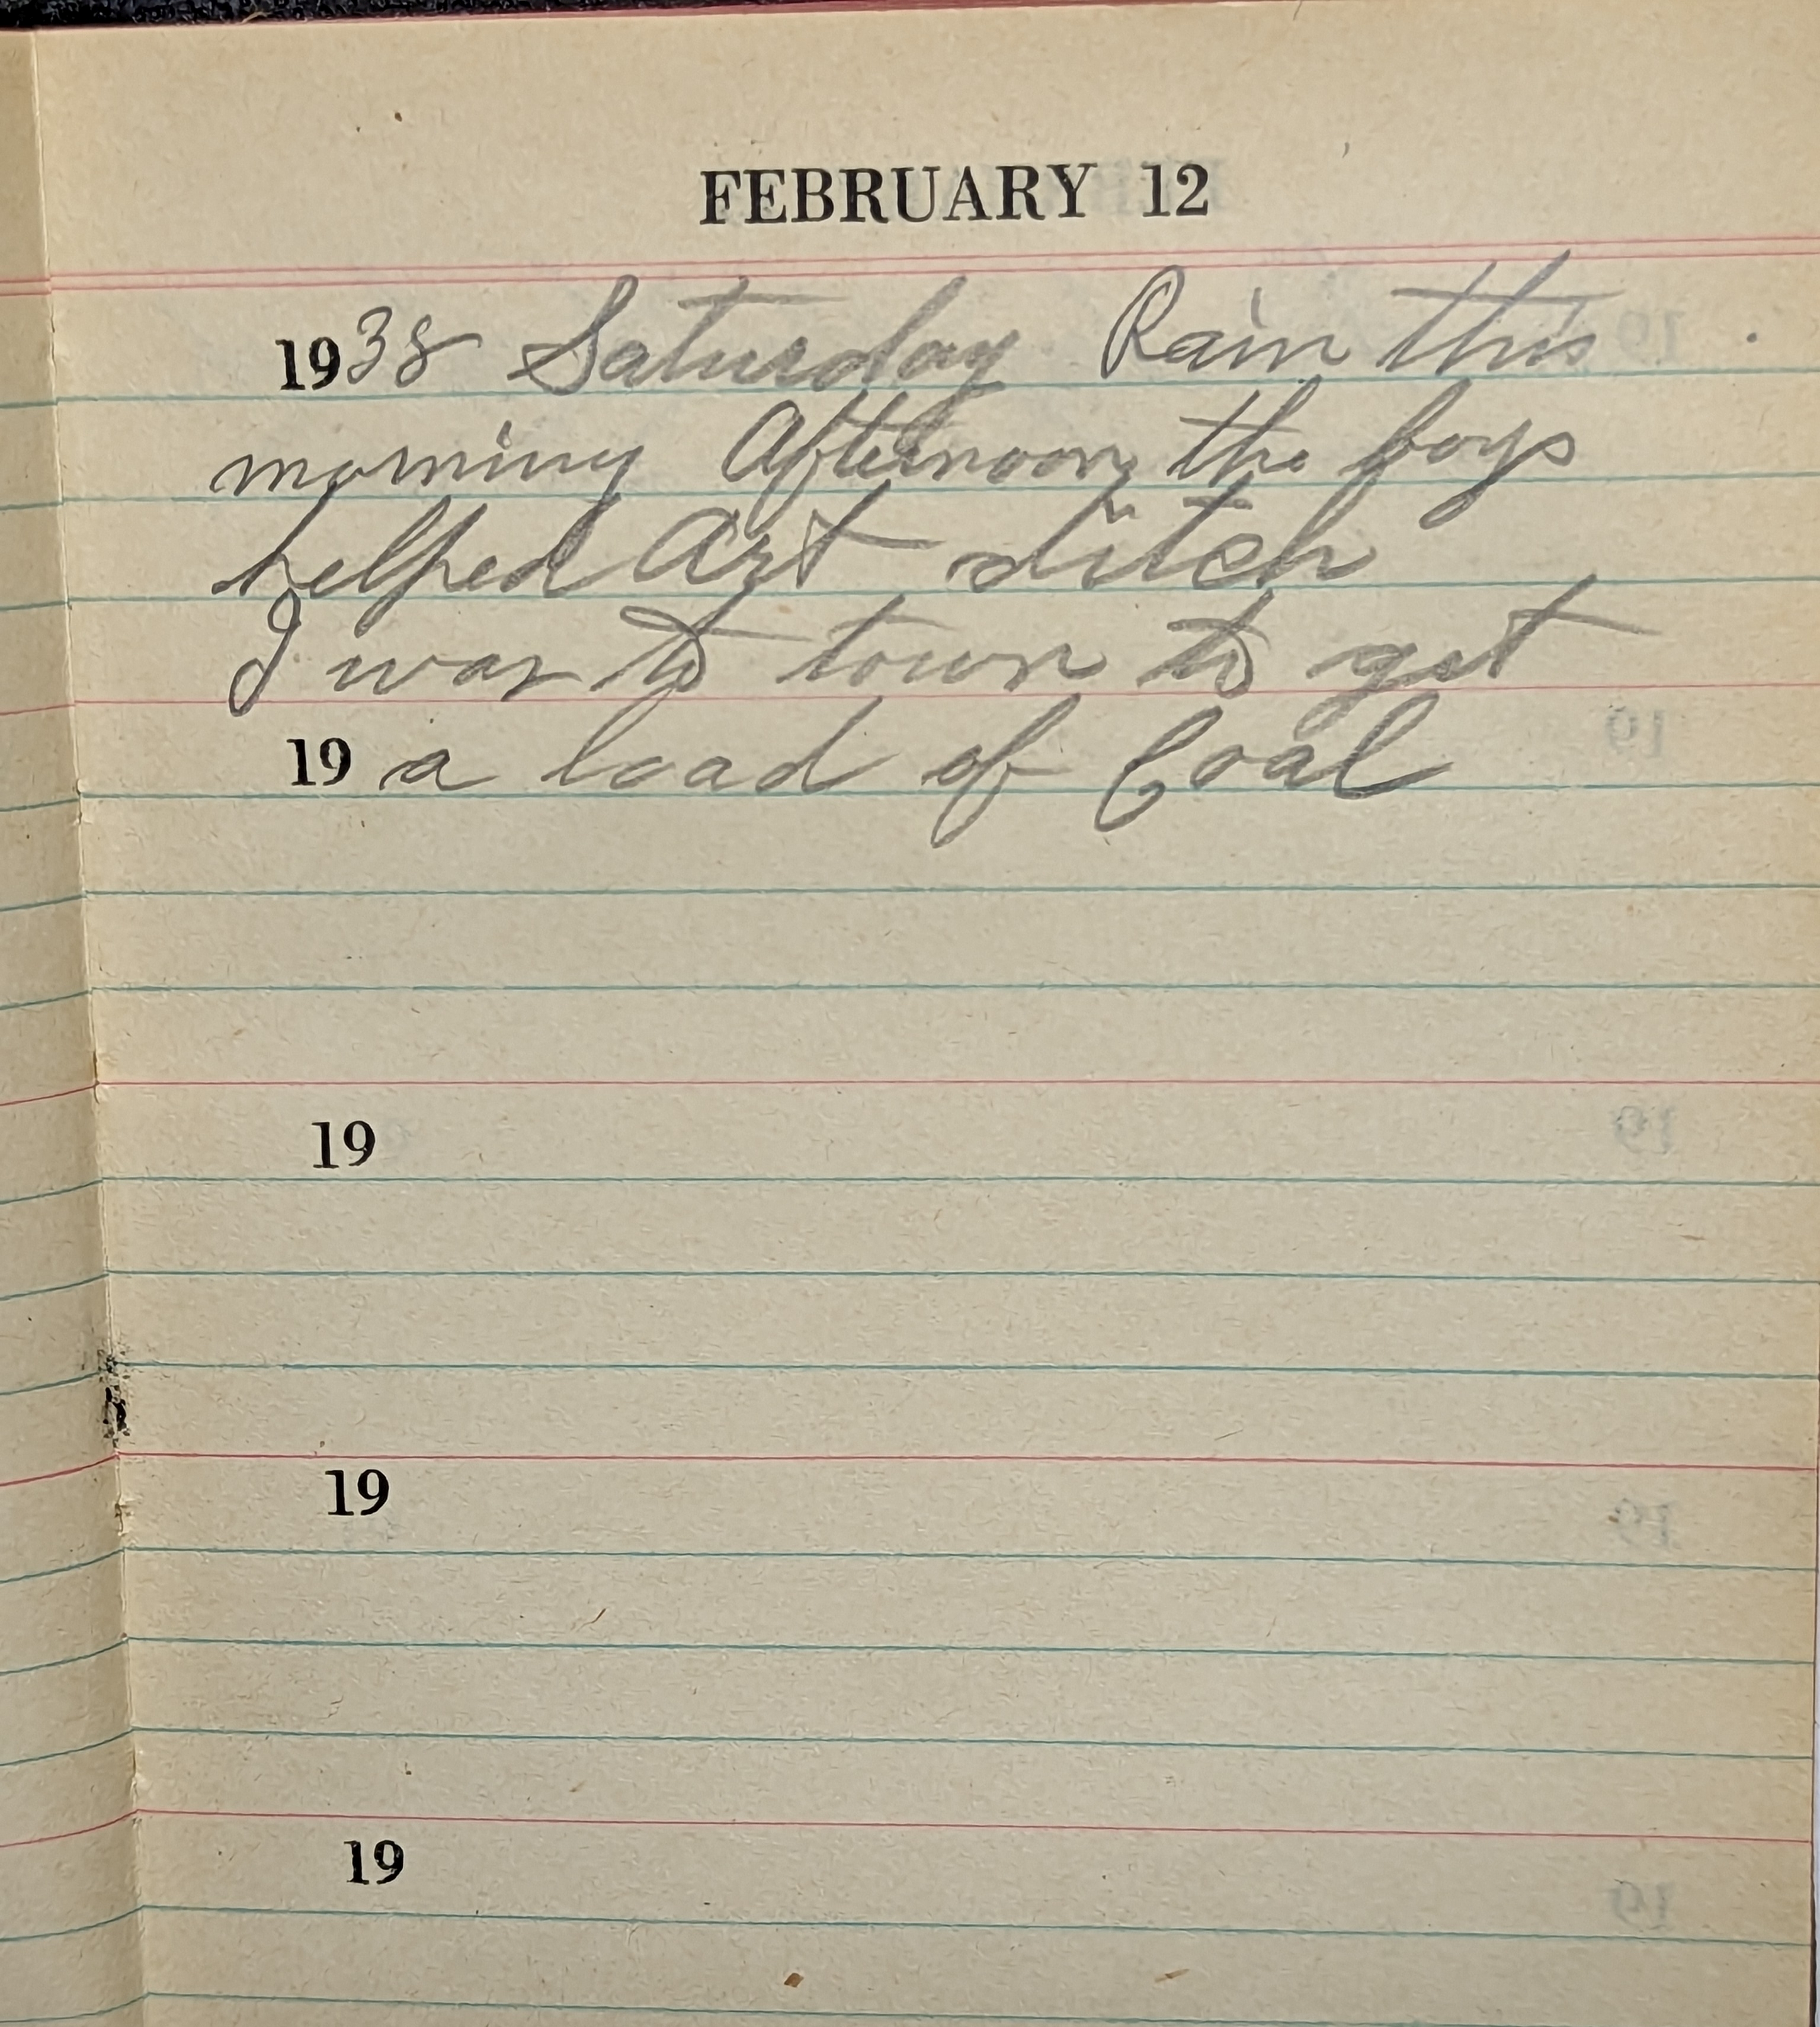 FEBRUARY 12
1938 Saturday Rain this
morning Afternoon the boys
helped Art ditch
I was to town to get
19 a load of Coal
19
19
19